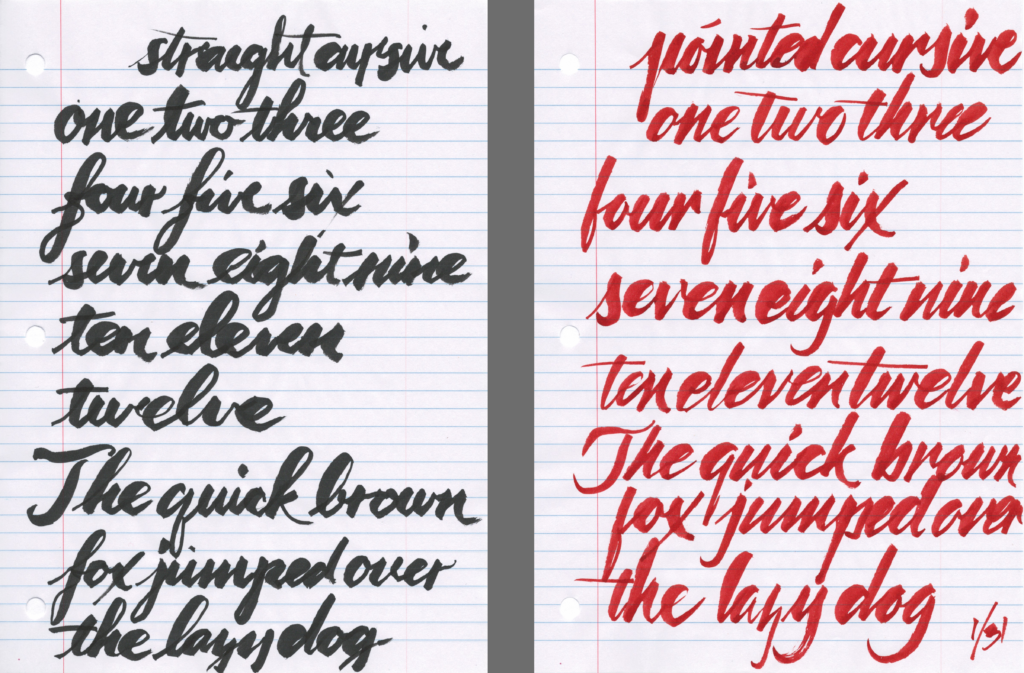 straight cursive
one two three
four five six
seven eight nine
ten eleven
twelve
The quick brown
fox jumped over
the lazy dog
pointed cursive
one two three
four five six
seven eight nine
ten eleven twelve
The quick brown
fox jumped over
the lazy dog
1/31